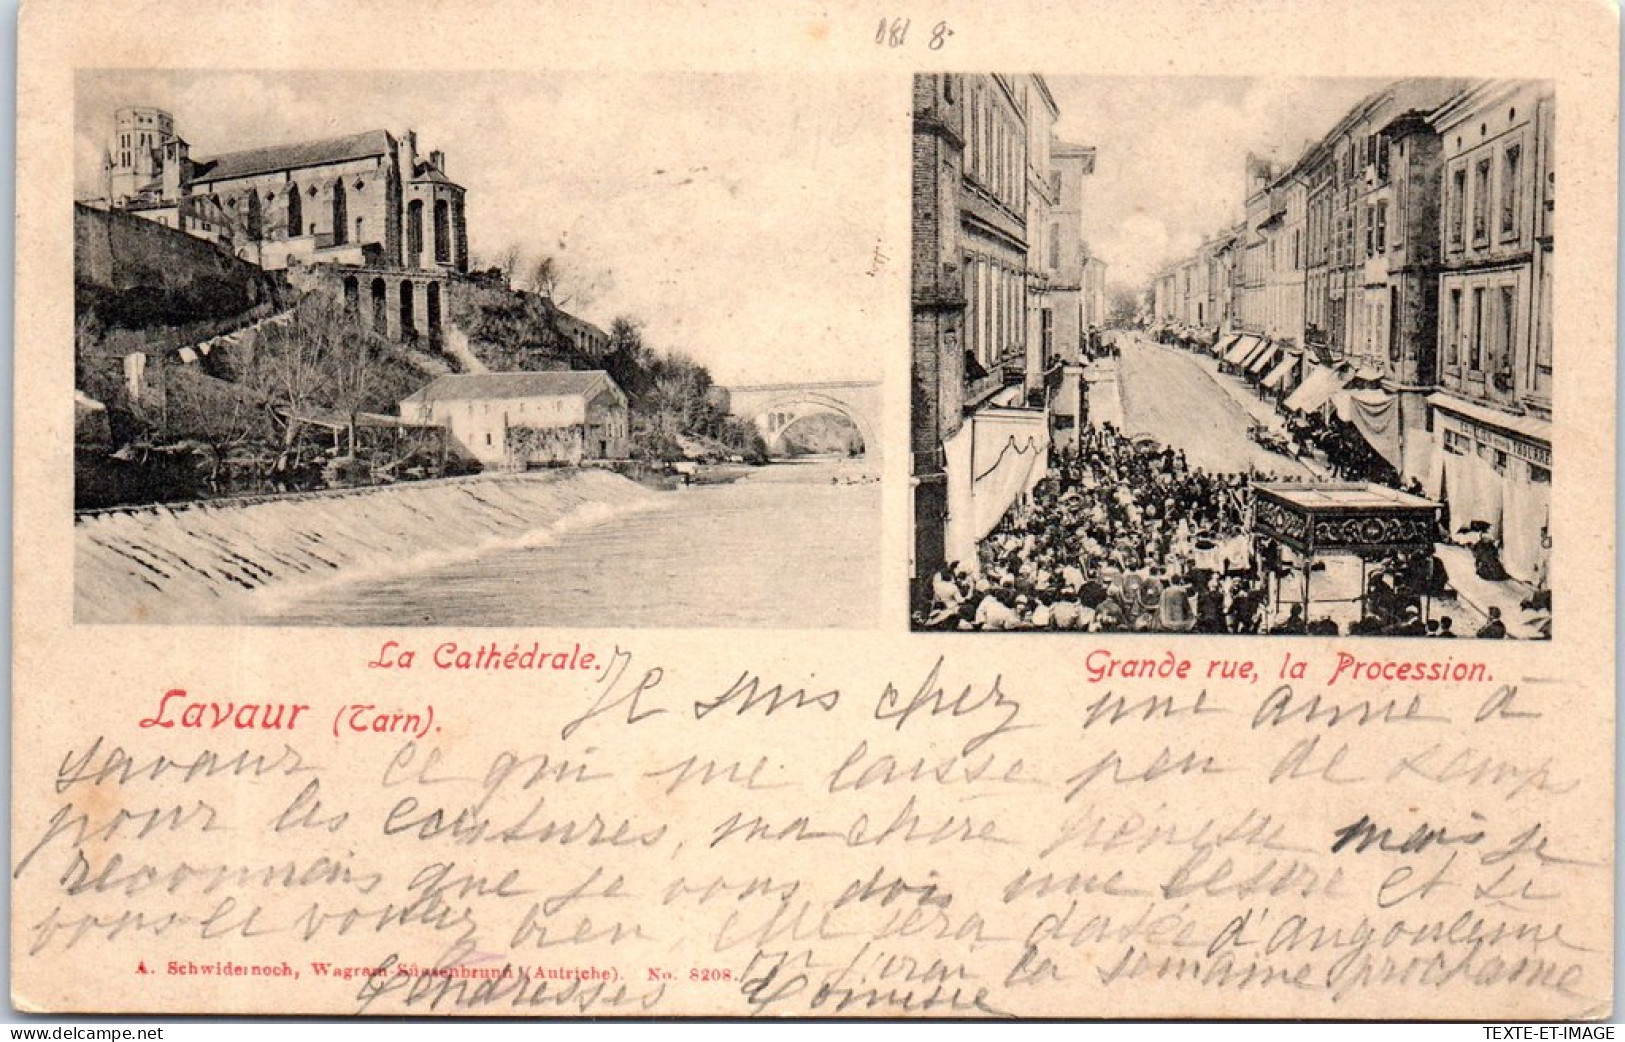 La Cathédrale.
Grande rue, la Procession.
Lavaur (Tarn).
Je suis chez une amie à
Lavaur ce qui me laisse peu de temps
pour les écritures, ma chère mais je
reconnais que je vous dois une lettre et si
vous le voulez bien, elle sera datée d'angoulême
où j'irai la semaine prochaine
Tendresses
A. Schwidernoch, Wagram-Süssenbrunn (Autriche). No. 8208.
TEXTE-ET-IMAGE
www.delcampe.net